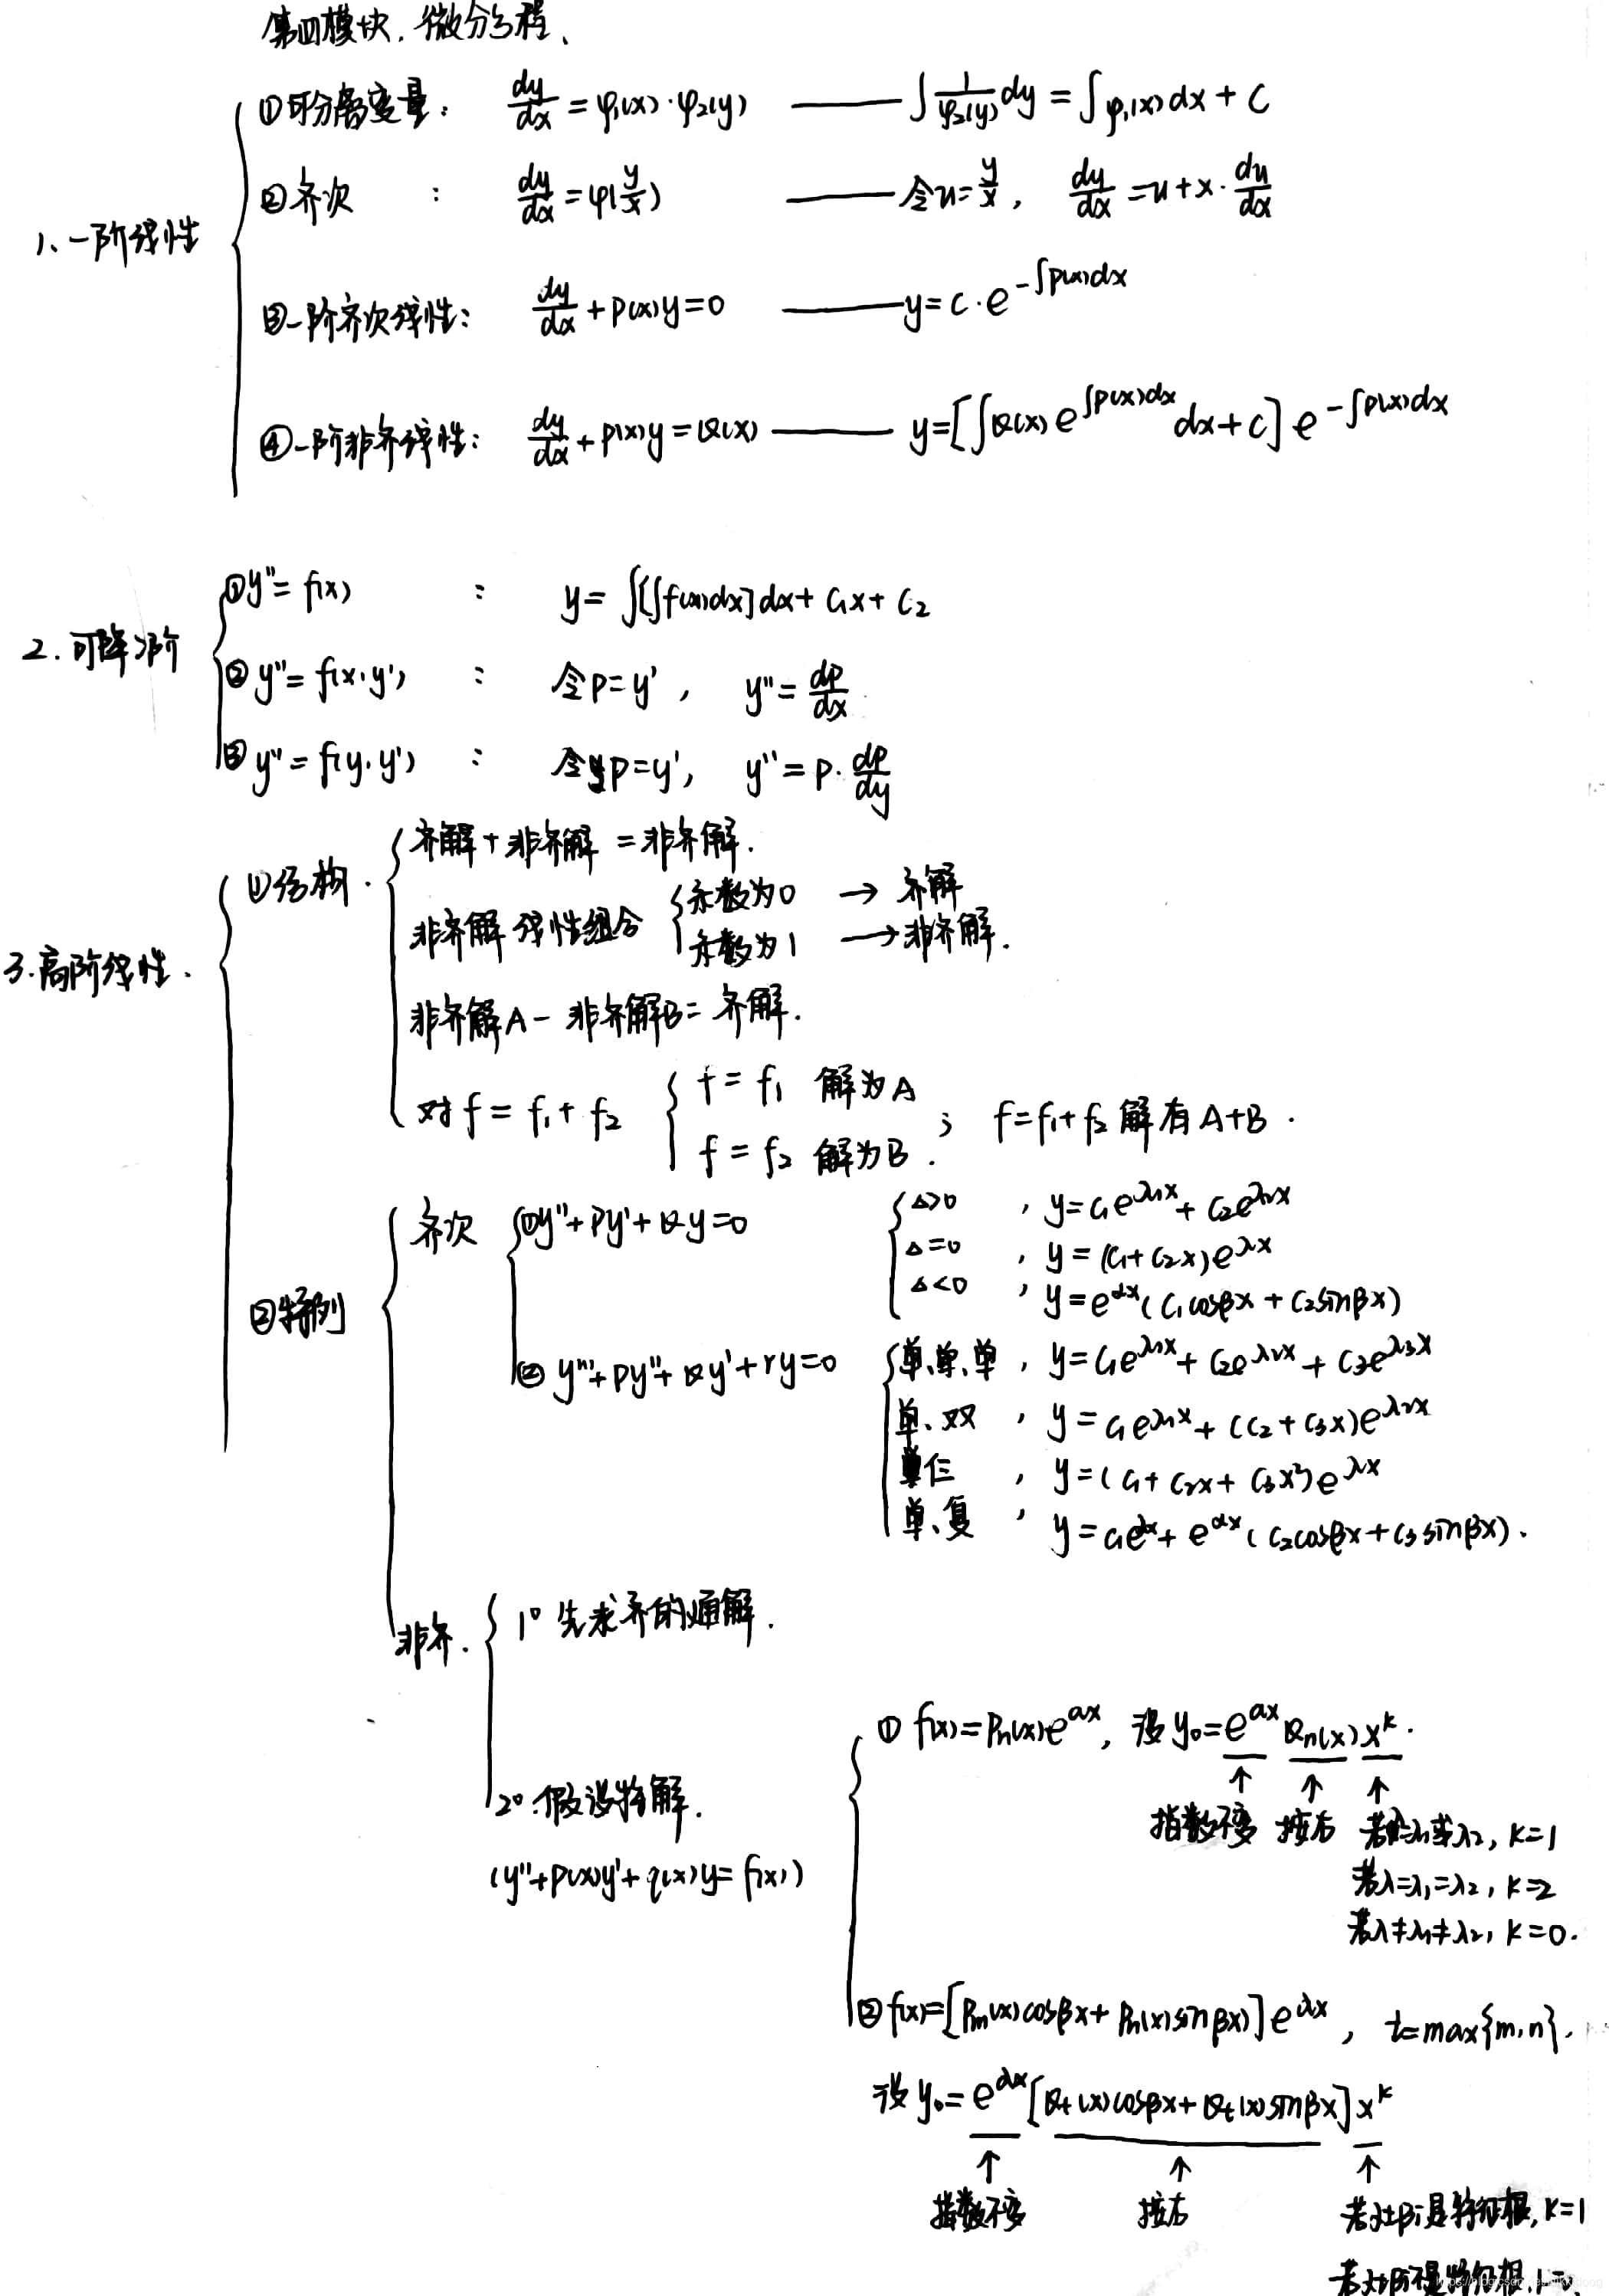 第四模块. 微分方程、
1、一阶线性
①可分离变量: dy/dx = φ₁(x)·φ₂(y) —— ∫ 1/φ₂(y) dy = ∫ φ₁(x) dx + C
②齐次 : dy/dx = φ(y/x) —— 令u = y/x, dy/dx = u + x·du/dx
③一阶齐次线性: dy/dx + P(x)y = 0 —— y = C·e^(-∫P(x)dx)
④一阶非齐线性: dy/dx + P(x)y = Q(x) —— y = [∫Q(x) e^(∫P(x)dx) dx + C] e^(-∫P(x)dx)
2.可降阶
①y'' = f(x) : y = ∫[∫f(x)dx]dx + C₁x + C₂
②y'' = f(x,y') : 令P = y', y'' = dP/dx
③y'' = f(y,y') : 令P = y', y'' = P·dP/dy
3.高阶线性.
①结构.
齐解 + 非齐解 = 非齐解.
非齐解 线性组合
系数为0 → 齐解
系数为1 → 非齐解.
非齐解A - 非齐解B = 齐解.
对 f = f₁ + f₂
f = f₁ 解为A
f = f₂ 解为B.
; f = f₁ + f₂ 解有A+B.
②特例
齐次
①y'' + Py' + Qy = 0
Δ>0 , y = C₁e^(λ₁x) + C₂e^(λ₂x)
Δ=0 , y = (C₁ + C₂x)e^(λx)
Δ<0 , y = e^(αx)(C₁cosβx + C₂sinβx)
②y''' + Py'' + Qy' + ry = 0
单、单、单, y = C₁e^(λ₁x) + C₂e^(λ₂x) + C₃e^(λ₃x)
单、双 , y = C₁e^(λ₁x) + (C₂ + C₃x)e^(λ₂x)
三 , y = (C₁ + C₂x + C₃x²)e^(λx)
单、复 , y = C₁e^(λx) + e^(αx)(C₂cosβx + C₃sinβx).
非齐.
1° 先求齐的通解.
2° 假设特解.
(y'' + P(x)y' + q(x)y = f(x))
① f(x) = Pn(x)e^(αx), 设y₀ = e^(αx) Qn(x) x^k.
↑ ↑ ↑
指数不变 按右 若λ=λ₁或λ₂, k=1
若λ=λ₁=λ₂, k=2
若λ≠λ₁≠λ₂, k=0.
②f(x) = [Pm(x)cosβx + Pn(x)sinβx]e^(αx), t = max{m,n}.
设y₀ = e^(αx)[Qt(x)cosβx + Qt(x)sinβx]x^k
↑ ↑ ↑
指数不变 按右 若α±βi是特征根, k=1
若α±βi不是特征根,